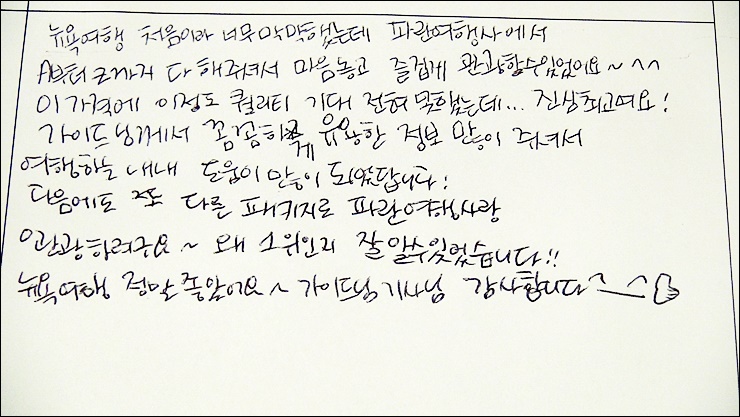 뉴욕여행 처음이라 너무막막했는데 파란여행사에서
A부터 Z까지 다해주셔서 마음놓고 즐겁게 관광할수있었어요~^^
이가격에 이정도 퀄리티 기대 전혀 못했는데... 진심최고예요!
가이드님께서 꼼꼼하게 유용한 정보 많이 주셔서
여행하는 내내 도움이 많이 되었답니다!
다음에도 또 다른 패키지로 파란여행사랑
관광하려구요~ 왜 1위인지 잘알수있었습니다!!
뉴욕여행 정말좋았어요~ 가이드님기사님 감사합니다^_^